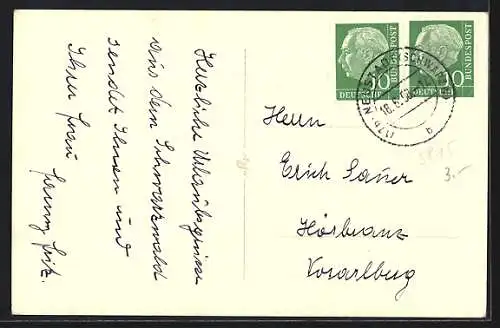 Herzliche Urlaubsgrüsse
aus dem Schwarzwald
sendet Ihnen und
Ihrer Frau
Fritz.
10
DEUTSCHE
BUNDESPOST
10
DEUTSCHE
BUNDESPOST
(17b) NEUSTADT (SCHWARZW)
b
Herrn
Erich Sauer
Hörbranz
Vorarlberg
3.-